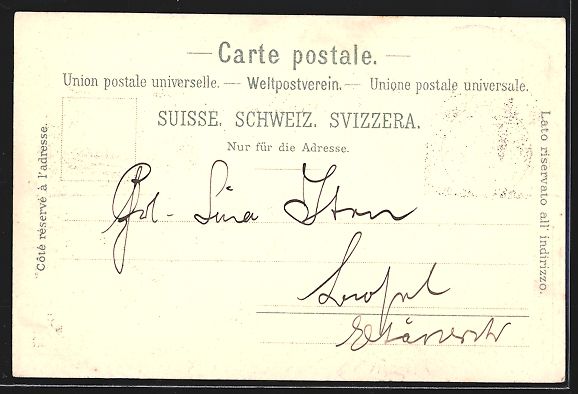 — Carte postale. —
Union postale universelle. — Weltpostverein. — Unione postale universale.
SUISSE. SCHWEIZ. SVIZZERA.
Nur für die Adresse.
Côté réservé à l'adresse.
Lato riservato all' indirizzo.
Frl. Lina